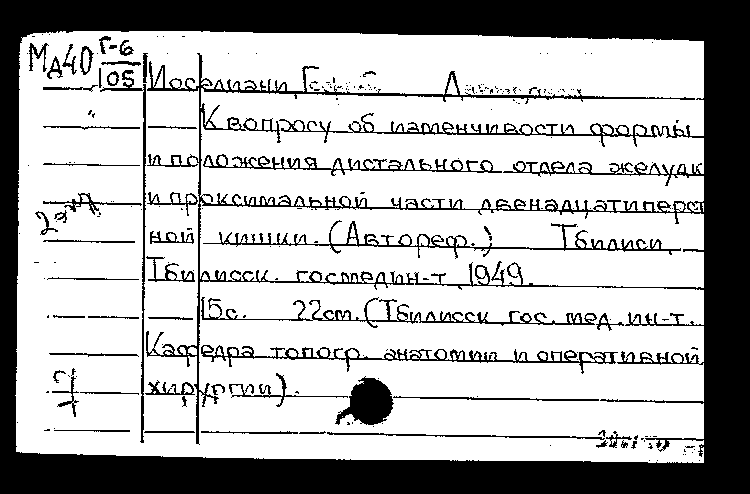 Мд40 Г-6
105
Иоселиани,
К вопросу об изменчивости формы
и положения дистального отдела желудк
и проксимальной части двенадцатиперст
ной кишки. (Автореф.) Тбилиси,
Тбилисск. госмедин-т, 1949.
15с. 22см. (Тбилисск. гос. мед. ин-т.
Кафедра топогр. анатомии и оперативной
хирургии).
2экз